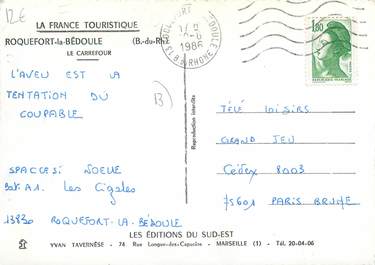 12€
LA FRANCE TOURISTIQUE
ROQUEFORT-la-BÉDOULE (B.-du-Rh.)
LE CARREFOUR
1986
1,80
L'AVEU EST LA
TENTATION DU
COUPABLE
13
SPACCESI NOELLE
Bat. A1. Les Cigales
13830 ROQUEFORT-LA-BÉDOULE
Reproduction interdite
TÉLÉ LOISIRS
GRAND JEU
CEDEX 8003
75601 PARIS BRUNE
LES ÉDITIONS DU SUD-EST
YVAN TAVERNÈSE - 74 Rue Longue-des-Capucins - MARSEILLE (1) - Tél. 20-04-06